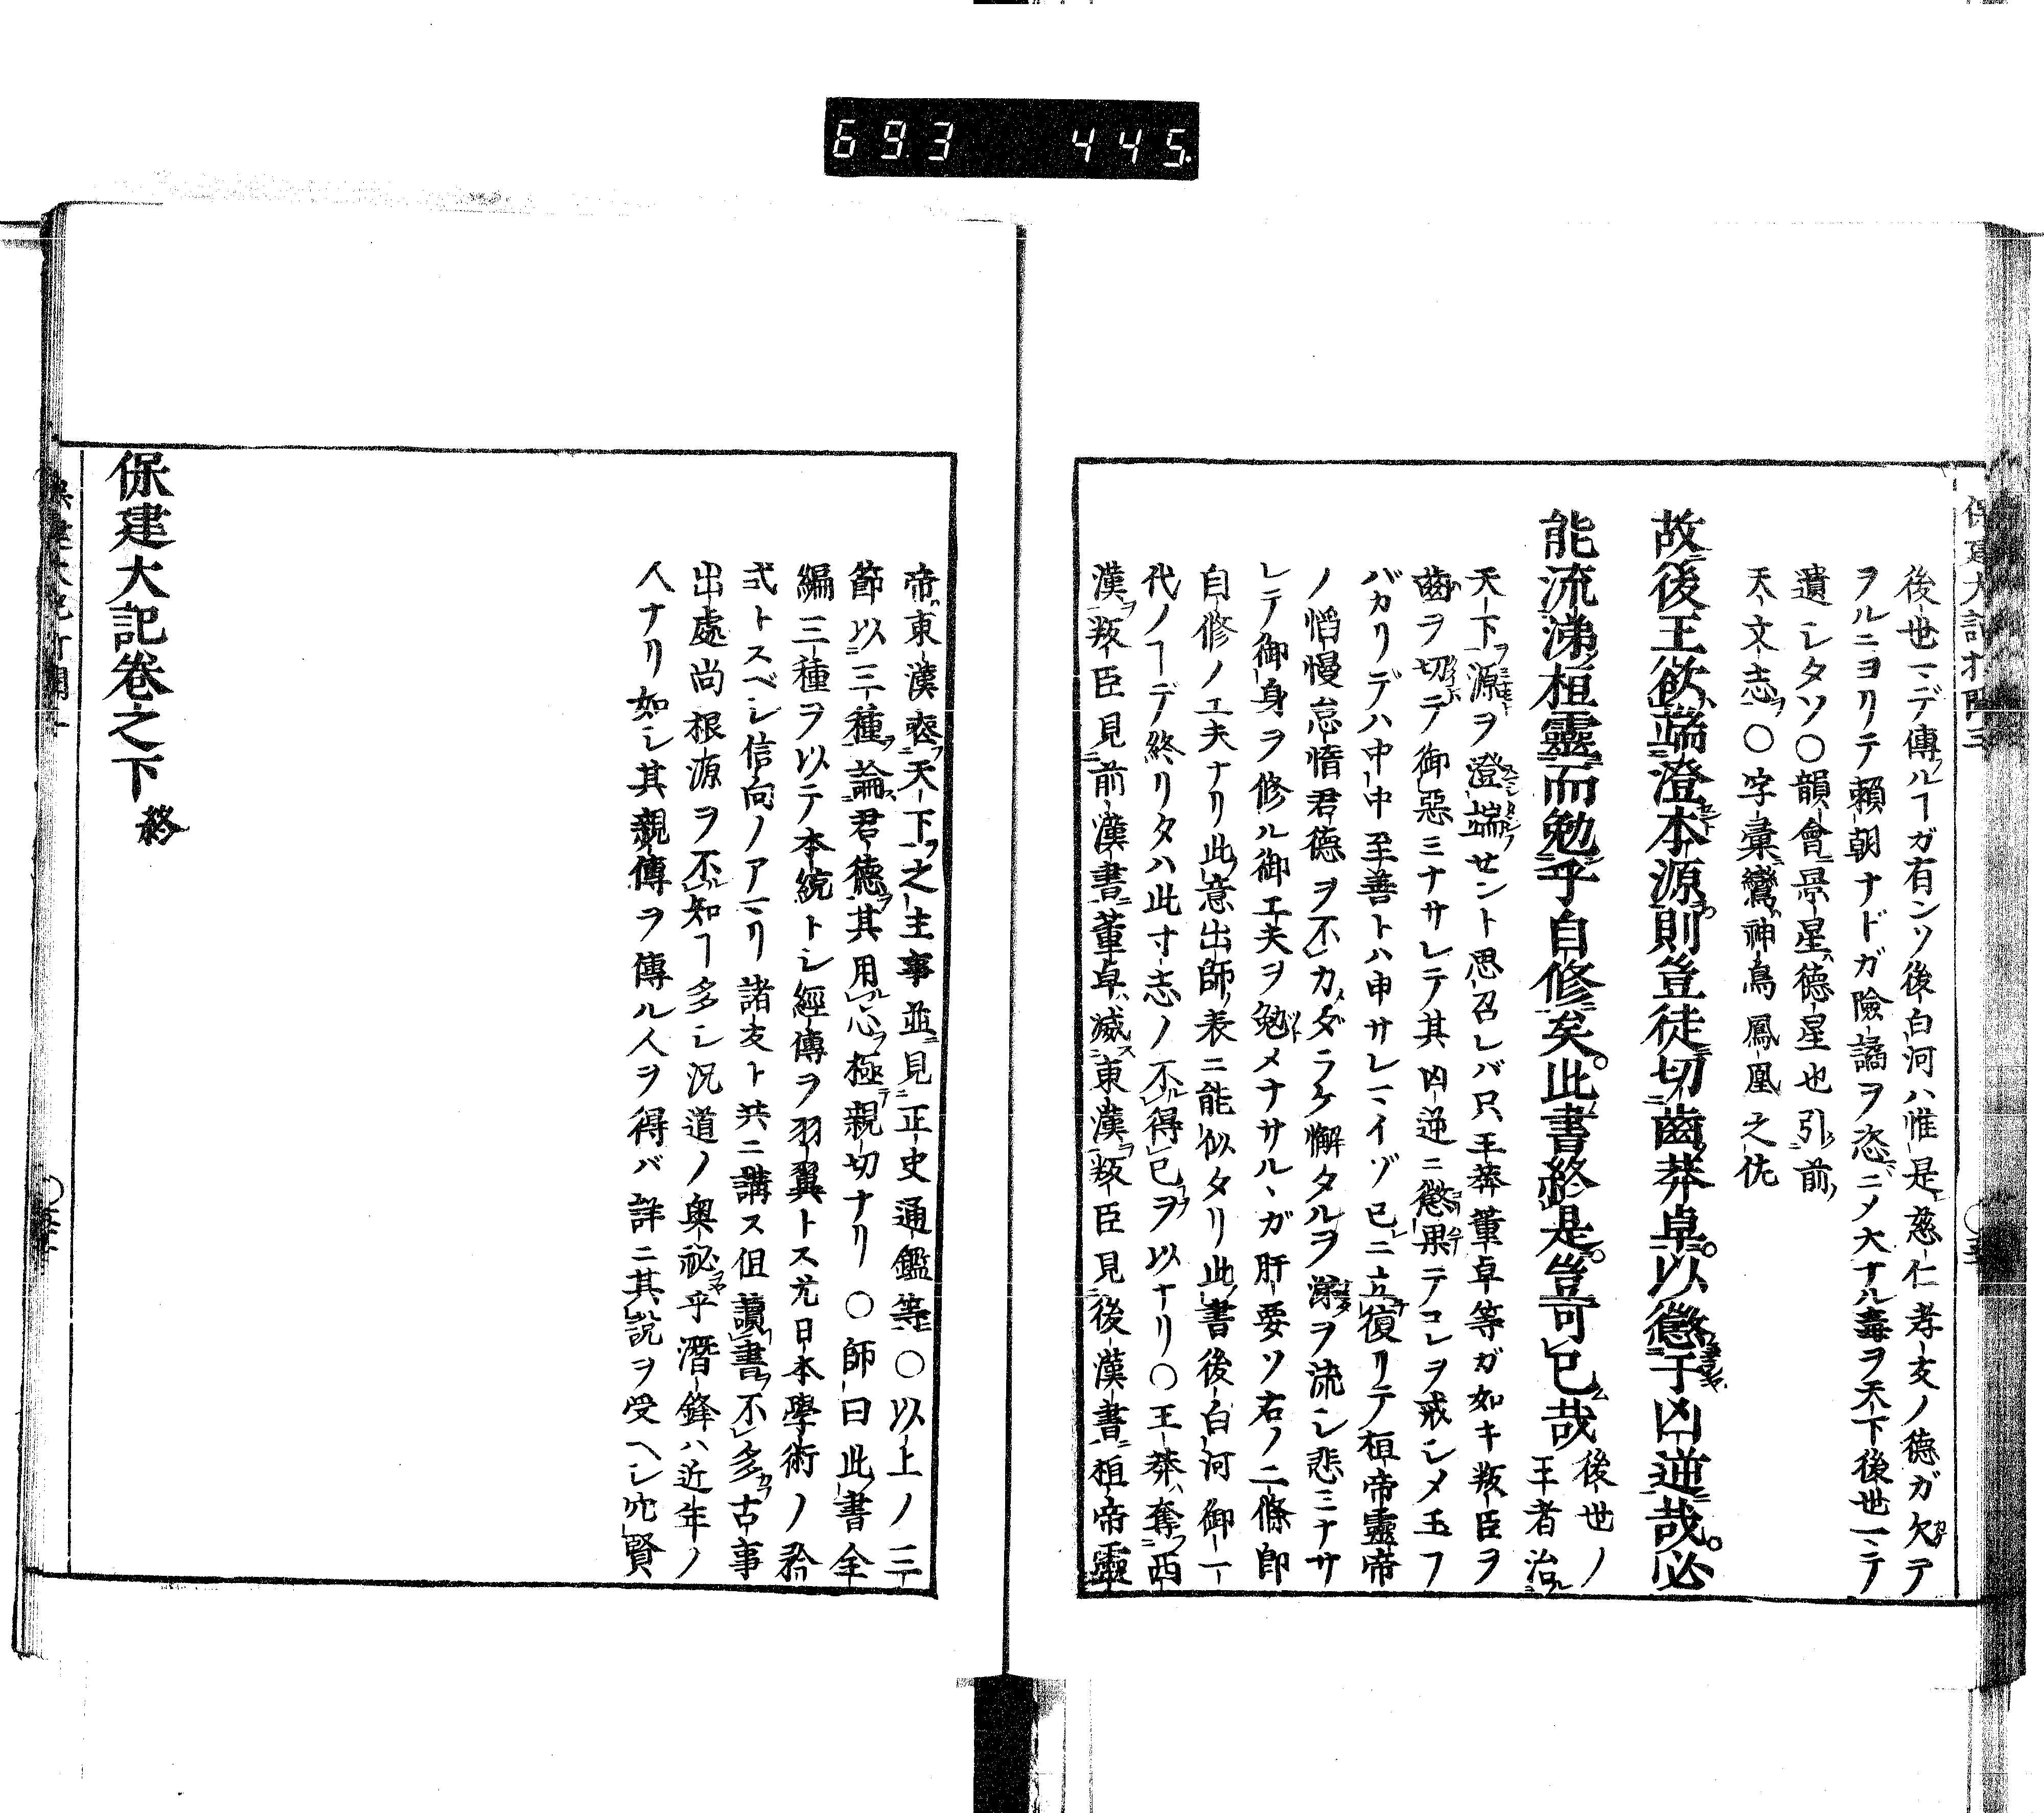 693 445.
後世マデ傳ルヿガ有ンソ後白河ハ惟是慈仁孝友ノ德ガ欠テ
ヲルニヨリテ賴朝ナドガ險譎ヲ恣ニメ大ナル毒ヲ天下後世マテ
遺シタソ〇韻會景星德星也引前
天文志〇字彙鸞神鳥鳳凰之佐
故後王欲端澄本源則豈徒切齒莽卓。以懲于凶逆哉。必
能流涕桓靈而勉乎自修矣。此書終是。豈可已哉 後世ノ
王者治
天下ヲ源ヲ澄端セント思召レバ只王莽董卓等ガ如キ叛臣ヲ
齒ヲ切テ御惡ミナサレテ其凶逆ニ懲果テコレヲ戒シメ玉フ
バカリデハ中中至善トハ申サレマイゾ已ニ立復リテ桓帝靈帝
ノ慆慢怠惰君德ヲ不カメダラケ懈タルヲ涙ヲ流シ悲ミナサ
レテ御身ヲ修ル御工夫ヲ勉メナサルヽガ肝要ソ右ノ二條卽
自修ノ工夫ナリ此意出師表ニ能似タリ此書後白河御一
代ノヿデ終リタハ此寸志ノ不得已ヲ以ナリ〇王莽奪西
漢叛臣見前漢書董卓滅東漢叛臣見後漢書桓帝靈
帝東漢喪天下之主事並見正史通鑑等〇以上ノ二
節以三種論君德其用心極親切ナリ〇師曰此書全
編三種ヲ以テ本統トシ經傳ヲ羽翼トス尤日本學術ノ矜
式トスベシ信向ノアマリ諸友ト共ニ講ス但讀書不多古事
出處尚根源ヲ不知ヿ多シ況道ノ奧祕乎潛鋒ハ近年ノ
人ナリ如シ其親傳ヲ傳ル人ヲ得バ詳ニ其說ヲ受ヘシ穴賢
保建大記卷之下 終